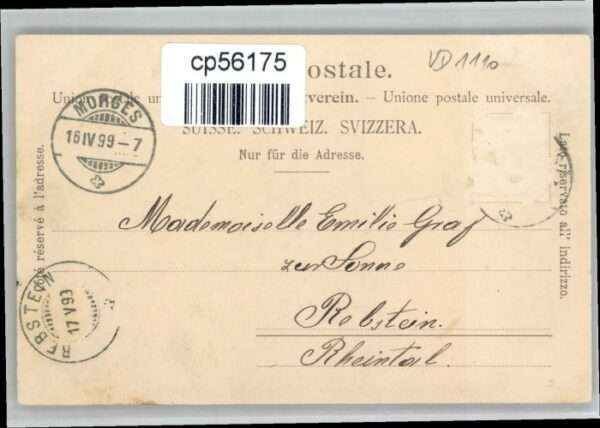 cp56175
VD1110
ostale.
Uni ale un verein. – Unione postale universale.
SUISSE. SCHWEIZ. SVIZZERA.
Nur für die Adresse.
MORGES
16 IV 99 – 7
té réservé à l'adresse.
Lato riservato all' indirizzo.
Mademoiselle Emilie Graf
zur Sonne
Rebstein.
Rheintal.
REBSTEIN
17 V 99